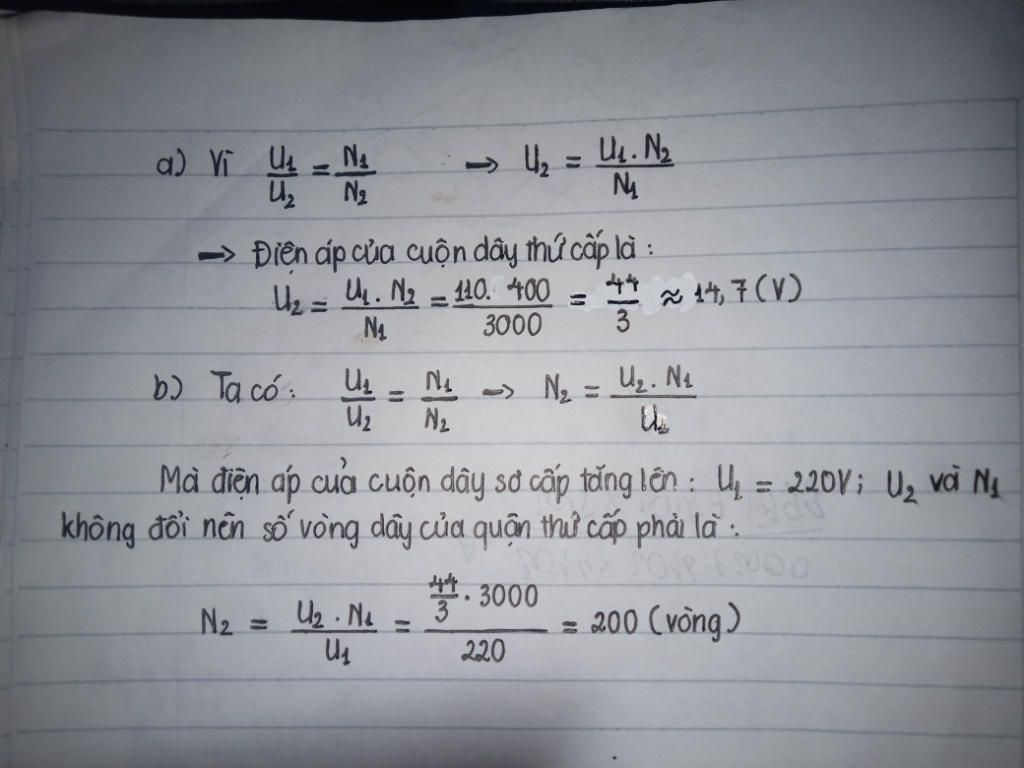 a) Vì U₁/U₂ = N₁/N₂ → U₂ = U₁.N₂/N₁
→ Điện áp của cuộn dây thứ cấp là:
U₂ = U₁.N₂/N₁ = 110.400/3000 = 44/3 ≈ 14,7 (V)
b) Ta có: U₁/U₂ = N₁/N₂ → N₂ = U₂.N₁/U₁
Mà điện áp của cuộn dây sơ cấp tăng lên: U₁ = 220V; U₂ và N₁
không đổi nên số vòng dây của quận thứ cấp phải là:
N₂ = U₂.N₁/U₁ = (44/3 . 3000)/220 = 200 (vòng)